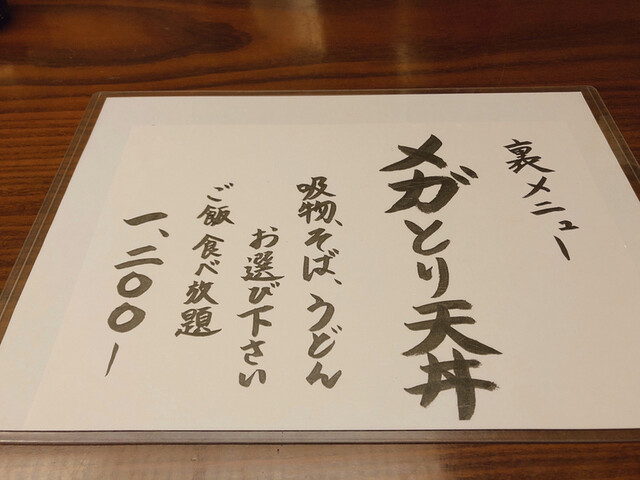 裏メニュー
メガとり天丼
吸物、そば、うどん
お選び下さい
ご飯食べ放題
一、二〇〇ー